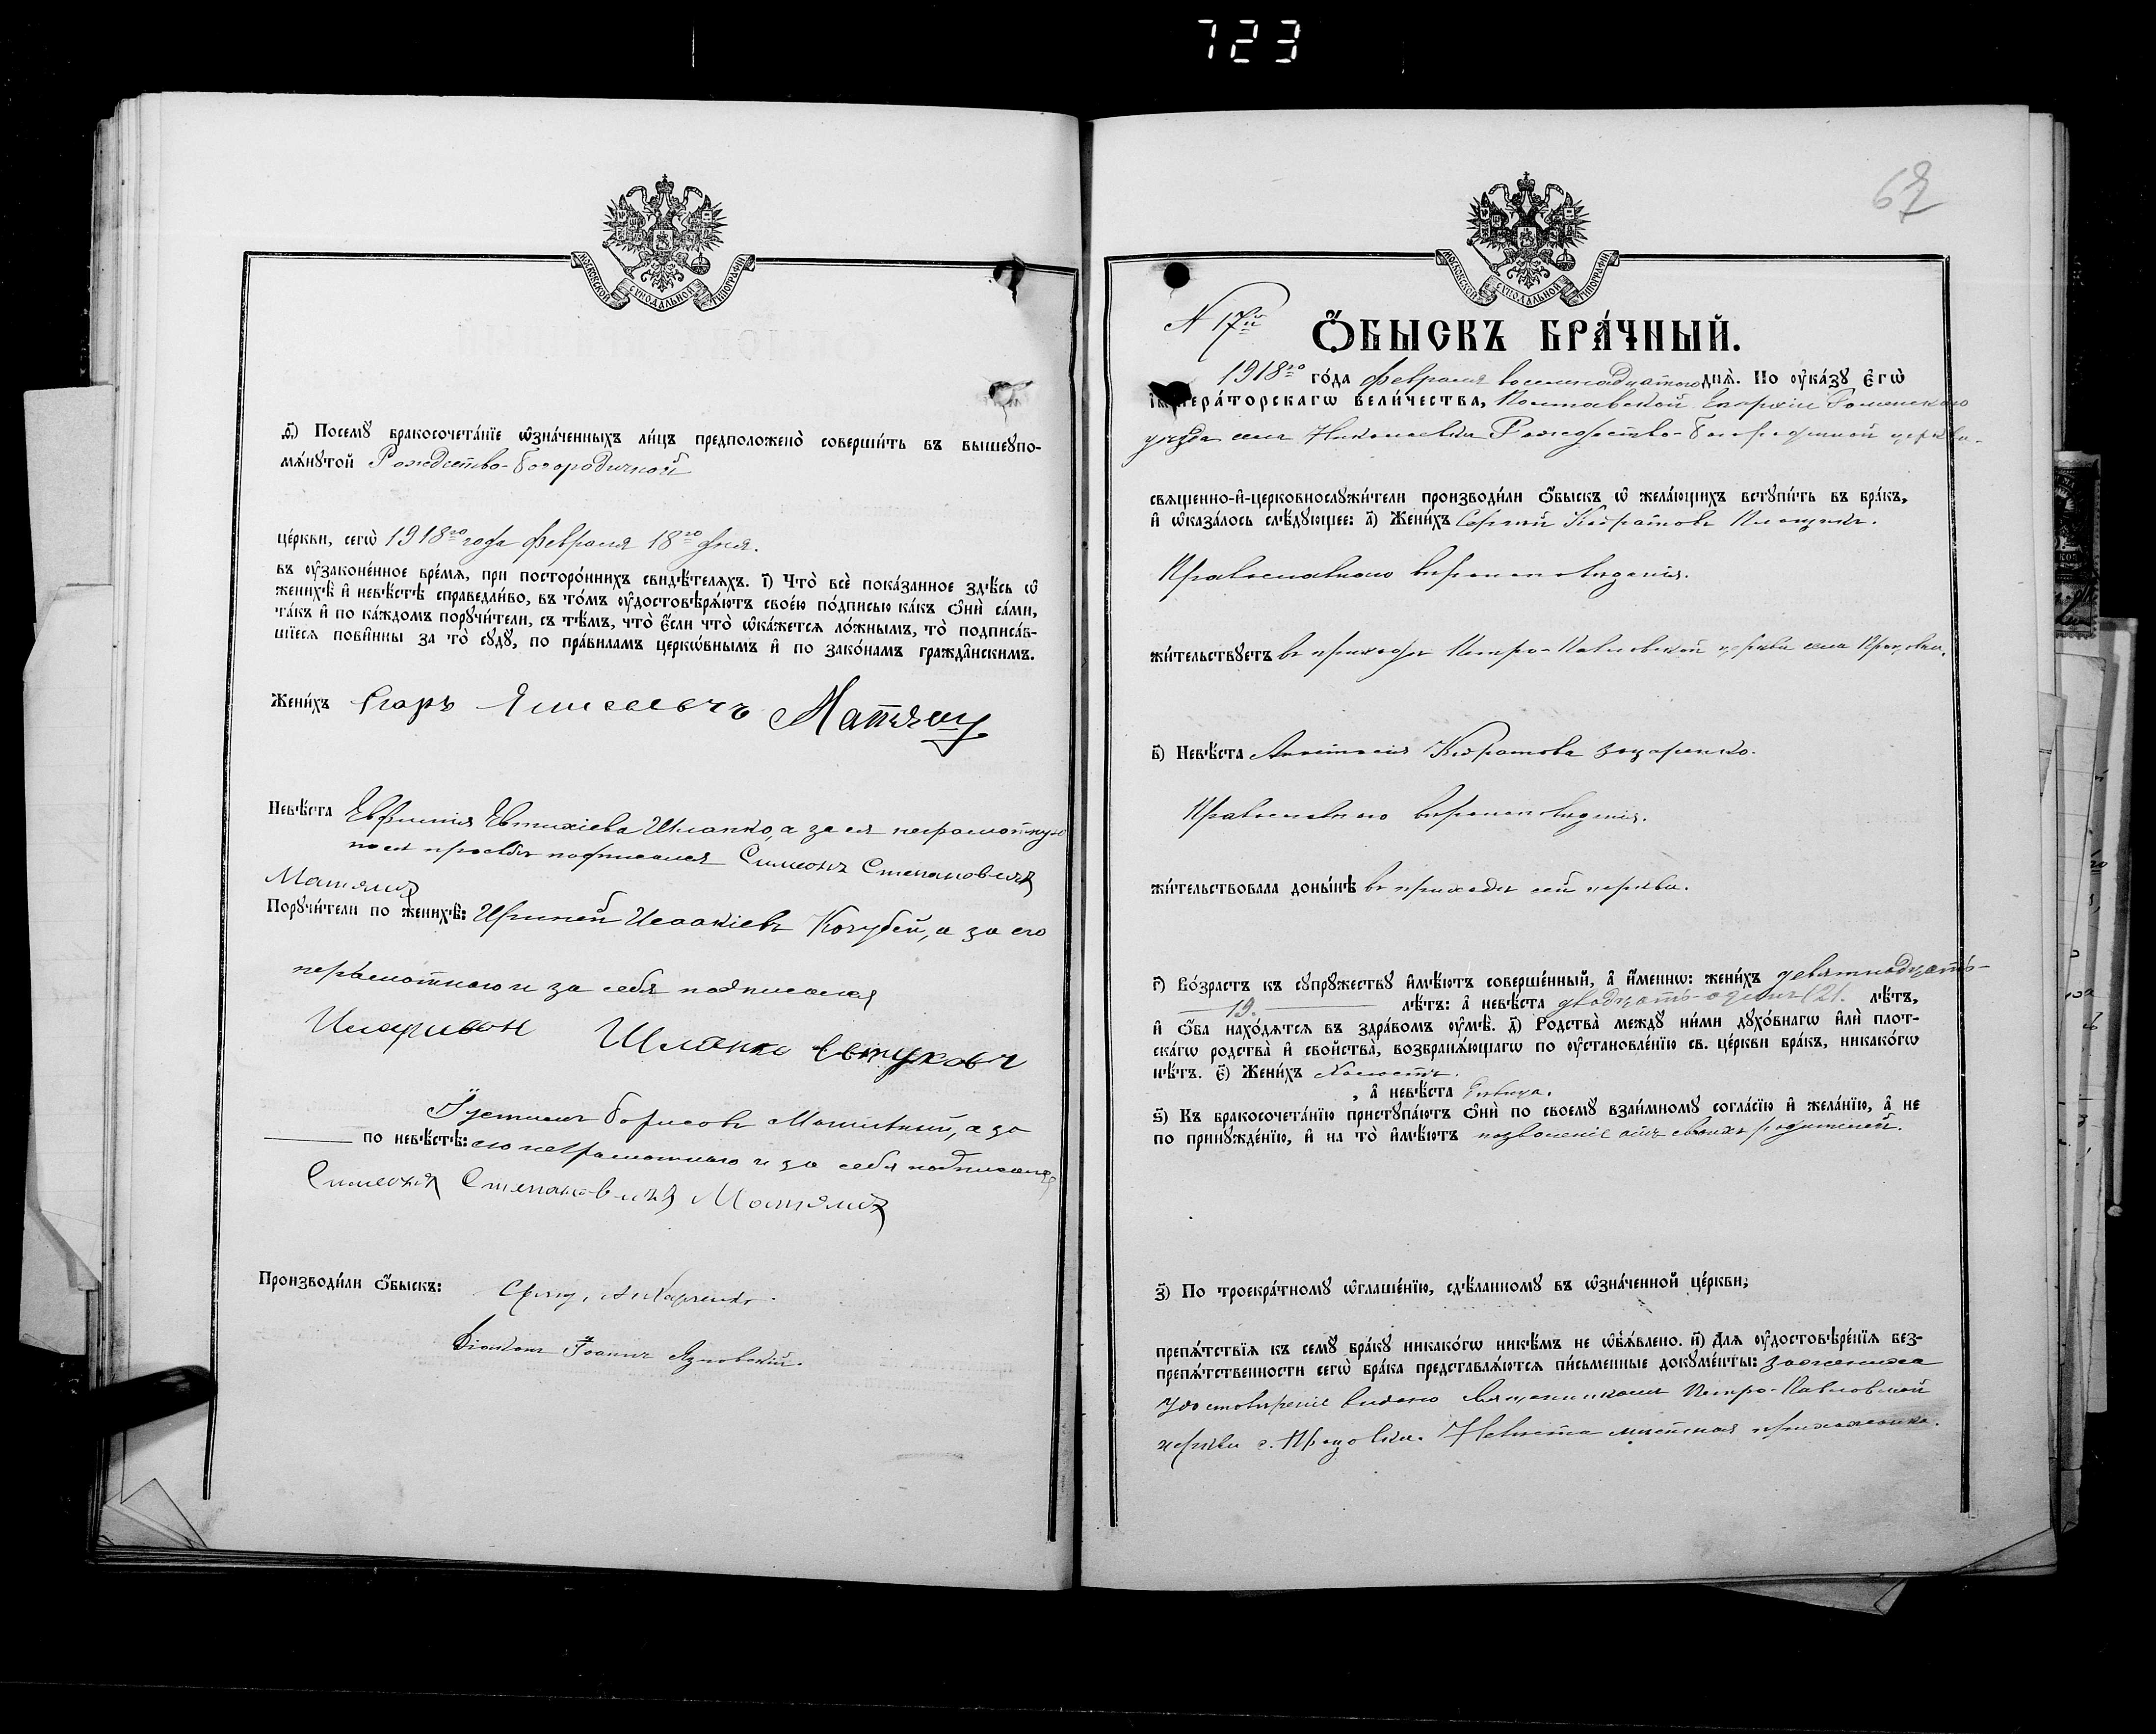 723
МОСКОВСКОЙ СѴНОДАЛЬНОЙ ТИПОГРАФІИ
.ѳ҃.) Посемꙋ̀ бракосочета́нїе ѡ҆зна́ченныхъ ли́цъ предположено̀ соверши́ть въ вышеꙋпо-
мѧ́нꙋтой Рождество-Богородичной
це́ркви, сегѡ̀ 1918го года февраля 18го дня.
въ ᲂу҆зако́ненное вре́мѧ, при посторо́ннихъ свидѣ́телѧхъ. і҃) Что̀ всѐ пока́занное здѣ́сь ѡ҆
женихѣ̀ и҆ невѣ́стѣ справедли́во, въ то́мъ ᲂу҆достовѣрѧ́ютъ свое́ю по́дписью ка́къ ѻ҆нѝ са́ми,
та́къ и҆ по ка́ждомъ порꙋчи́тели, съ тѣ́мъ, что̀ є҆́сли что̀ ѡ҆ка́жетсѧ ло́жнымъ, то̀ подписа́в-
шїесѧ пови́нны за то̀ сꙋдꙋ̀, по пра́виламъ церкѡ́внымъ и҆ по зако́намъ гражда̑нскимъ.
Жени́хъ Егоръ Матяшъ
Невѣ́ста Евфимія Евтихіева Шлапко, а за ея неграмотную
по ея просьбѣ подписался Симеонъ Степановичъ
Матяшъ
Порꙋчи́тели по женихѣ̀: Ириней Исаакіевъ Кочубей, а за его
неграмотного и за себя подписался
Иларионъ Шлапко Евтухович
Іустинъ Борисовъ а за
по невѣ́стѣ: его неграмотного и за себя подписался
Симеонъ Степановичъ Матяшъ
Производи́ли ѻ҆́быскъ: Свящ.
Діаконъ Іоаннъ Язловскій.
67
МОСКОВСКОЙ СѴНОДАЛЬНОЙ ТИПОГРАФІИ
N 17й
Ѻ҆́БЫСКЪ БРА́ЧНЫЙ.
1918го го́да февраля восемнадцатого днѧ̀. По ᲂу҆ка́зꙋ є҆гѡ̀
і҆мпера́торскагѡ вели́чества, Полтавской Епархіи Роменскаго
уѣзда села Николаевки Рождество-Богородичной церкви.
свѧщенно-и҆-церковнослꙋжи́тели производи́ли ѻ҆́быскъ ѡ҆ жела́ющихъ встꙋпи́ть въ бра́къ,
и҆ ѡ҆каза́лось слѣ́дꙋющее: а҃) Жени́хъ Сергий Кодратовъ
Православного вѣроисповѣданія.
жи́тельствꙋетъ въ приходѣ Петро-Павловской церкви села Процовки.
в҃) Невѣ́ста Анастасія Кодратова Захаренко.
Православного вѣроисповѣданія.
жи́тельствовала доны́нѣ въ приходѣ сей церкви.
г҃) Во́зрастъ къ сꙋпрꙋ́жествꙋ и҆мѣ́ютъ соверше́нный, а҆ и҆́меннѡ: жени́хъ девятнадцать-
19. лѣ́тъ: а҆ невѣ́ста двадцать-одинъ (21. лѣ́тъ,
и҆ ѻ҆́ба нахо́дѧтсѧ въ здра́вомъ ᲂу҆мѣ̀. д҃) Родства̀ междꙋ̀ ни́ми дꙋхо́внагѡ и҆лѝ плот-
ска́гѡ родства̀ и҆ сво́йства̀, возбранѧ́ющагѡ по ᲂу҆становле́нїю св. це́ркви бра́къ, никако́гѡ
нѣ́тъ. є҃) Жени́хъ Холостъ.
, а҆ невѣ́ста дѣвица.
ѕ҃) Къ бракосочета́нїю пристꙋпа́ютъ ѻ҆нѝ по своемꙋ̀ взаи́мномꙋ согла́сїю и҆ жела́нїю, а҆ не
по принꙋжде́нїю, и҆ на то̀ и҆мѣ́ютъ позволеніе отъ своихъ родителей.
з҃) По троекра́тномꙋ ѡ҆глаше́нїю, сдѣ́ланномꙋ въ ѡ҆зна́ченной це́ркви,
препѧ́тствїѧ къ семꙋ̀ бра́кꙋ никако́гѡ никѣ́мъ не ѡ҆б̾ѧ́влено. и҃) Для ᲂу҆достовѣре́нїѧ без-
препѧ́тственности сегѡ̀ бра́ка представлѧ́ютсѧ пи́сьменные докꙋме́нты: за жениха
удостовѣреніе видано священикомъ Петро-Павловской
церкви с. Процовки. Невѣста мѣстная прихожанка.